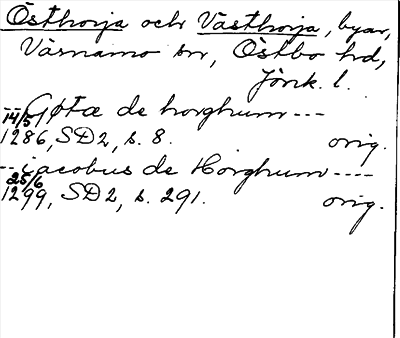 Östhorja och Västhorja, byar,
Värnamo sn, Östbo hd,
Jönk. l.
--- Gøtæ de horghum ---
14/5 1286, SD2, s. 8. orig.
-- jacobus de Horghum ----
25/6 1299, SD2, s. 291. orig.